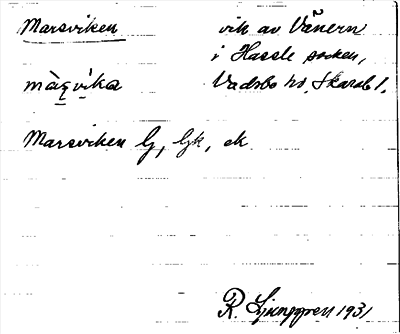 Marsviken vik av Vänern
i Hassle socken,
màʂvìka Vadsbo hd. Skarab. l.
Marsviken G, Gk, ek
R. Ljunggren 1931